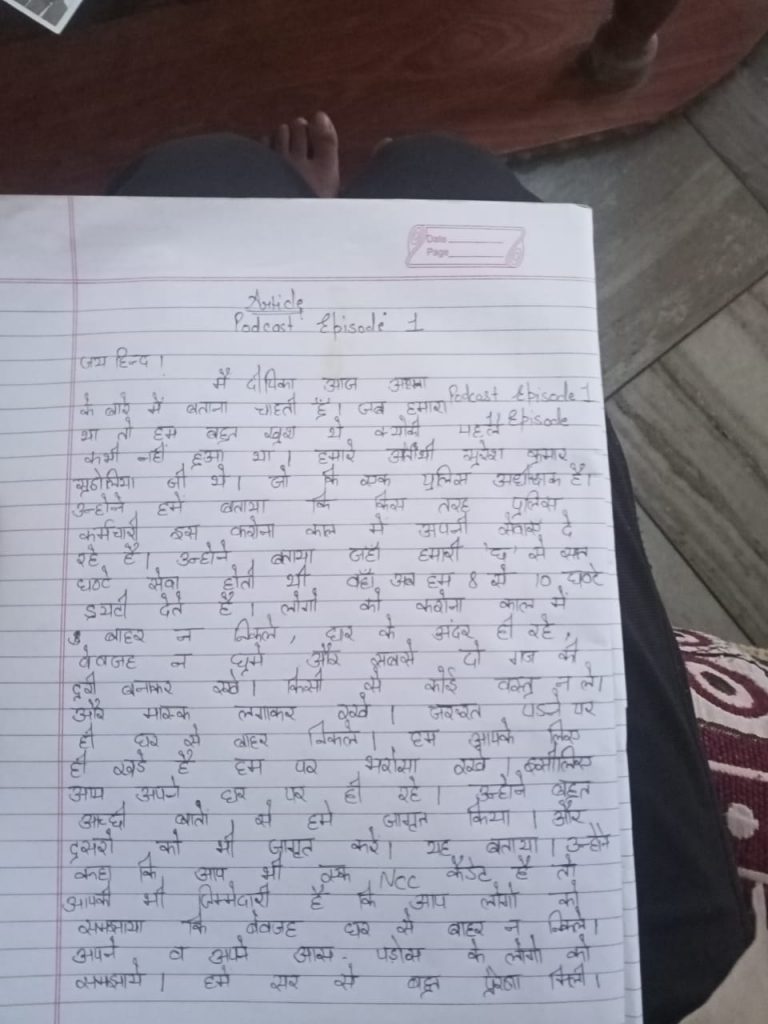 Date
Page
Article
Podcast Episode 1
जय हिन्द।
मैं दीपिका आज अपना Podcast Episode 1
के बारे में बताना चाहती हूँ। जब हमारा 1 Episode
था तो हम बहुत खुश थे क्योंकि पहले
कभी नहीं हुआ था। हमारे अतिथी सुरेश कुमार
जी थे। जो कि एक पुलिस अधीक्षक है।
उन्होने हमें बताया कि किस तरह पुलिस
कर्मचारी इस करोना काल मे अपनी सेवाए दे
रहे है। उन्होने बताया जहाँ हमारी 'छ' से सात
घण्टे सेवा होती थी वहाँ अब हम 8 से 10 घण्टे
ड्यटी देते है। लोगो को करोना काल में
बाहर न निकले, घर के अंदर ही रहे,
वेवजह न घुमे और सबसे दो गज की
दुरी बनाकर रखे। किसी से कोई वस्तु न ले।
और मास्क लगाकर रखे। जरुरत पडने पर
ही घर से बाहर निकले। हम आपके लिए
ही खडे है हम पर भरोसा रखे। इसीलिए
आप अपने घर पर ही रहे। उन्होने बहुत
अच्छी बातो से हमे जागृत किया। और
दुसरो को भी जागृत करे। यह बताया। उन्होने
कहा कि आप भी एक NCC कैडेट है तो
आपकी भी जिम्मेदारी है कि आप लोगो को
समझाया कि वेवजह घर से बाहर न निकले।
अपने व अपने आस-पड़ोस के लोगो को
समझाये। हमे सर से बहुत प्रेरणा मिली।